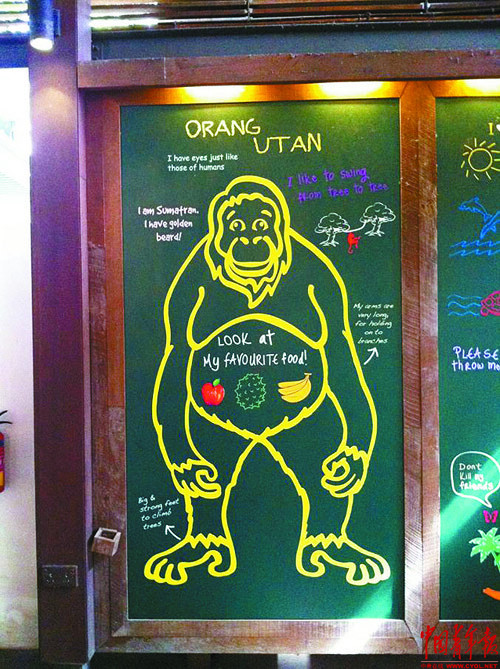 ORANG
UTAN
I have eyes just like
those of humans
I like to swing
from tree to tree
I am Sumatran.
I have golden
beard!
My arms are
very long,
for holding
on to
branches
LOOK at
My FAVOURITE food!
Big &
strong feet
to climb
trees
I
PLEASE
throw mo
Dont
Kill my
friends
中国青年报